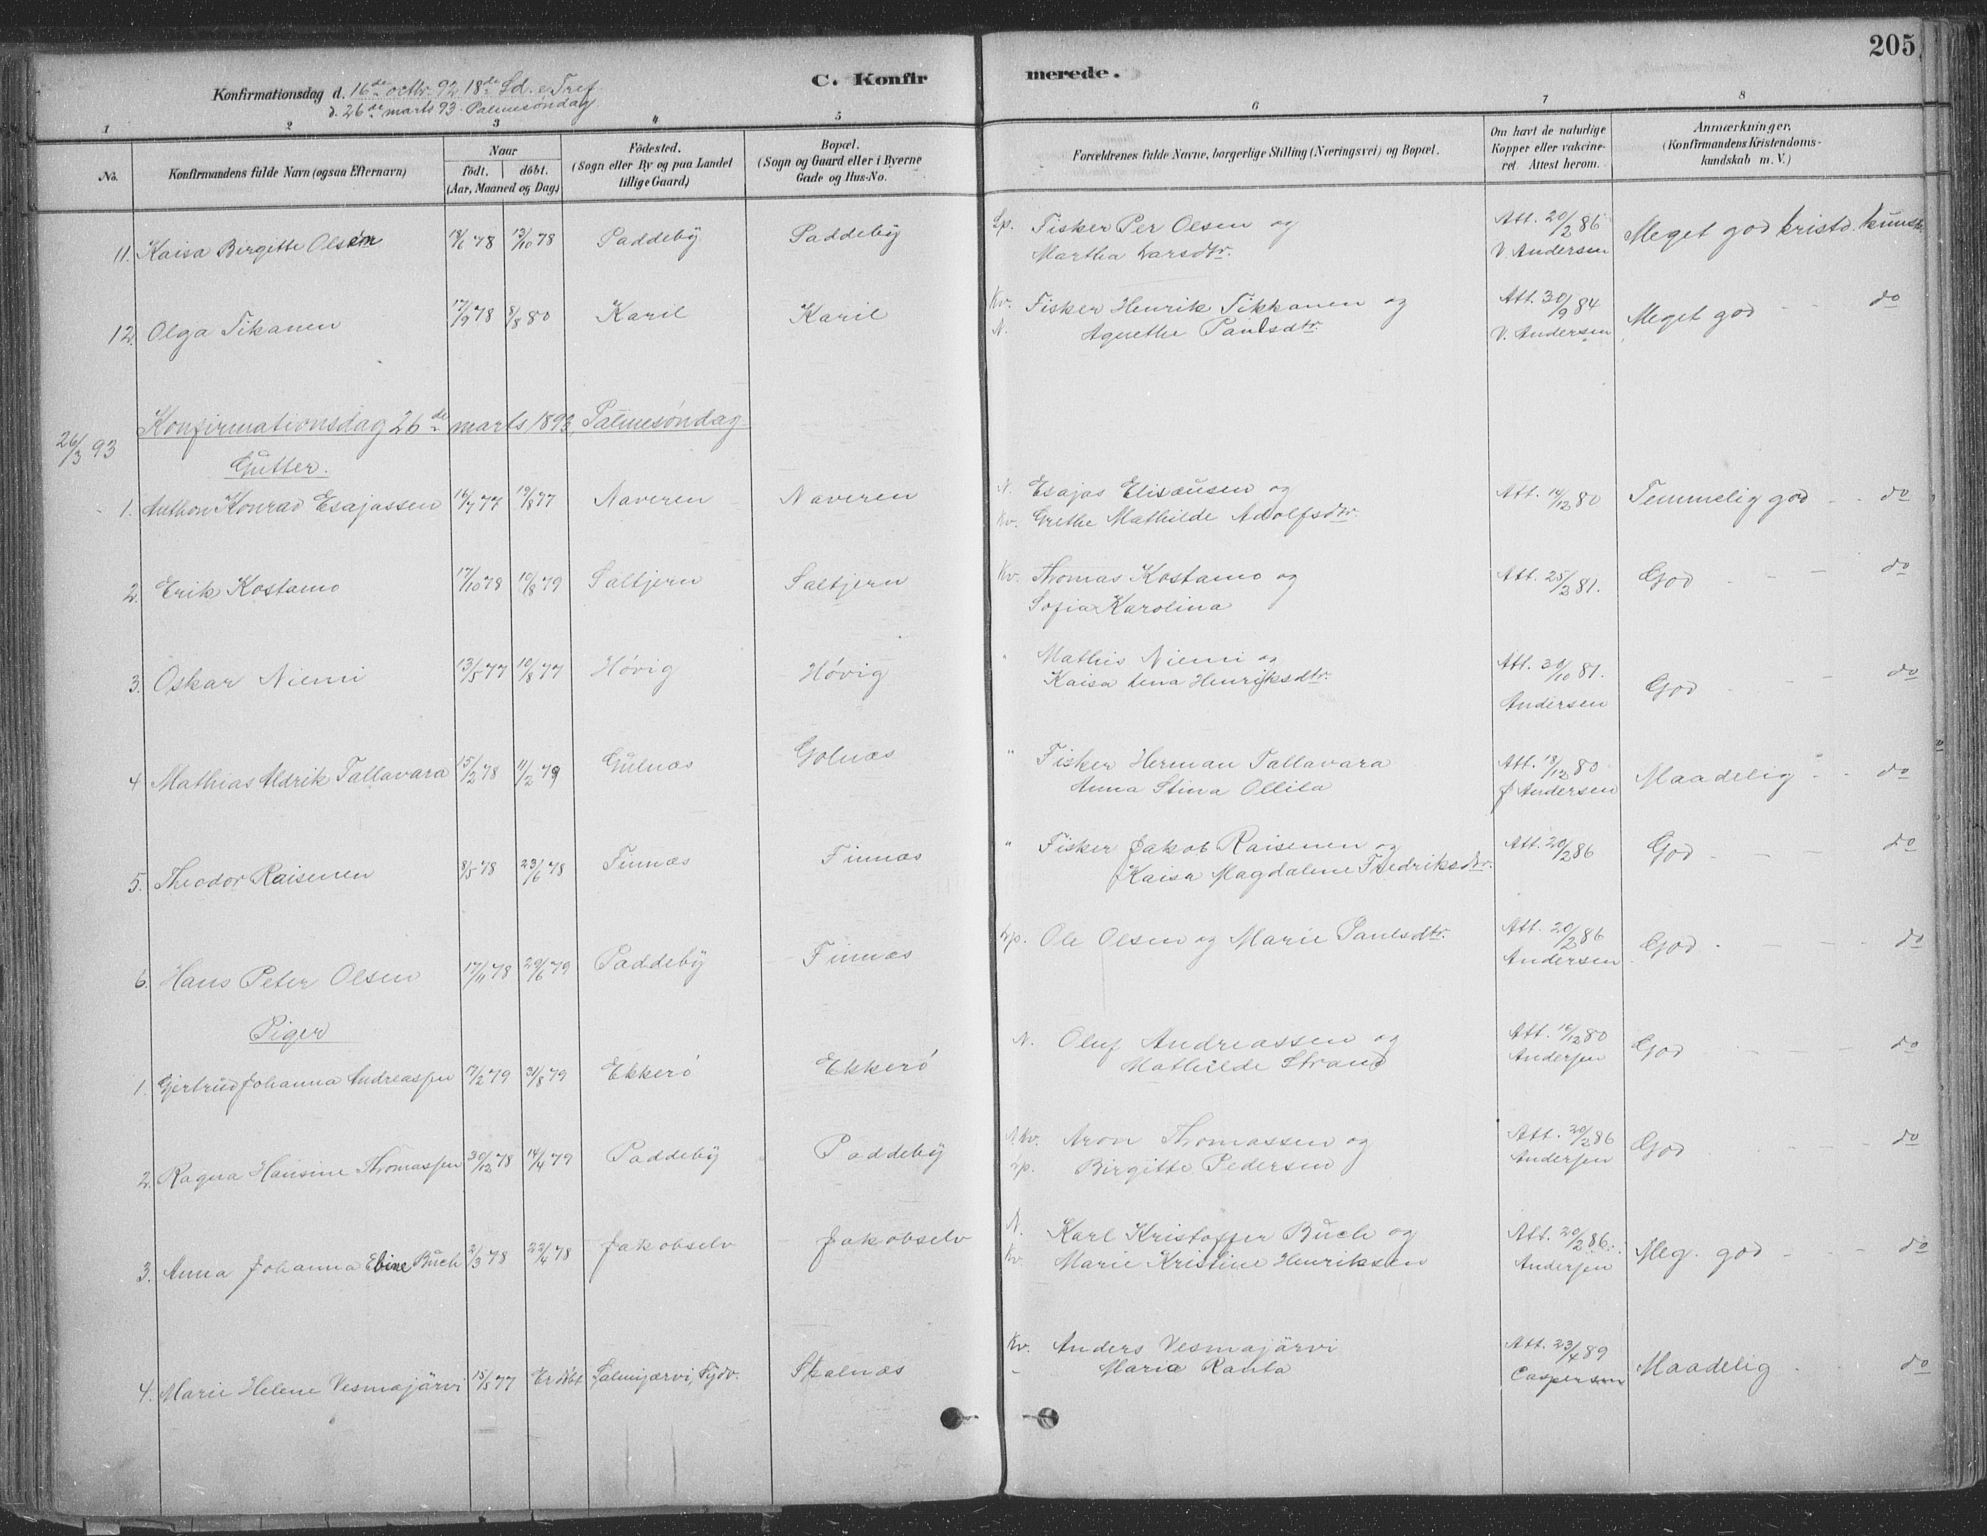 205
C. Konfirmerede.
Konfirmationsdag d. 16de octbr. 92 18de Sd. e. Tref.
d. 26de marts 93. Palmesøndag
1 2 3 4 5 6 7 8
No. Konfirmandens fulde Navn (ogsaa Efternavn) Naar født. døbt. (Aar, Maaned og Dag) Fødested. (Sogn eller By og paa Landet tillige Gaard) Bopæl. (Sogn og Gaard eller i Byerne Gade og Hus-No. Forældrenes fulde Navne, borgerlige Stilling (Næringsvei) og Bopæl. Om havt de naturlige Kopper eller vakcineret. Attest herom. Anmærkninger. (Konfirmandens Kristendomskundskab m. V.)
11. Kaisa Bergitte Olsen 78 13/10 78 Paddeby Paddeby Lp. Fisker Per Olsen og Att. 20/2 86 Meget god kristd. kundsk.
Martha Larsdtr. V. Andersen
12. Olga Tikanen 17/9 78 8/8 80 Karil Karil Kv. Fisker Henrik Tikkanen og Att. 30/9 84 Meget god - - do
N. Agnethe Paulsdtr V. Andersen
26/3 93 Konfirmationsdag 26de marts 1893, Palmesøndag
Gutter.
1. Anthon Konrad Esajassen 16/7 77 19/8 77 Naveren Naveren N. Esajas Elisæusen og Att. 14/12 80 Temmelig god - - do
Kv. Grethe Mathilde Adolfsdtr.
2. Erik Kostamo 17/10 78 10/8 79 Saltjern Saltjern Kv. Thomas Kostamo og Att. 25/2 81. God - - - do
Sofia Karolina
3. Oskar Niemi 13/5 77 10/8 77 Høvig Høvig " Mathis Niemi og Att. 30/10 81. God - - - do
Kaisa Lena Henriksdtr. Andersen
4 Mathias Aldrik Tallavara 15/2 78 11/2 79 Gulnæs Golnæs " Fisker Herman Tallavara Att. 18/12 80 Maadelig - - do
Anna Stina Ollila J Andersen
5. Theodor Raisenen 8/5 78 23/6 78 Finnæs Finnæs " Fisker Jakob Raisenen og Att. 20/2 86 God - - - do
Kaisa Magdalene Fredriksdtr.
6. Hans Peter Olsen 17/11 78 29/6 79 Paddeby Finnæs Lp. Ole Olsen og Marie Paulsdtr. Att. 20/2 86 God - - - do
Andersen
Piger
1. Gjertrud Johanna Andreassen 17/2 79 31/8 79 Ekkerö Ekkerö N. Oluf Andreassen og Att. 10/12 80 God - - - do
Mathilde Strand Andersen
2. Ragna Hansine Thomassen 30/12 78 14/4 79 Paddeby Paddeby N.Kv. Aron Thomassen og Att. 20/2 86 God - - - do
Lp. Birgitte Pedersen Andersen
3. Anna Johanna Eline Buch 2/3 78 22/4 78 Jakobselv Jakobselv N. Karl Kristoffer Buch og Att. 20/2 86. Meg. god - - - do
Kv. Marie Kristine Henriksen Andersen
4. Marie Helene Vesmajärvi 15/5 77 Er døbt Salmijærvi, Sydv. Skalnæs Kv. Anders Vesmajärvi Att. 23/4 89 Maadelig - - do
- Maria Ranta Caspersen